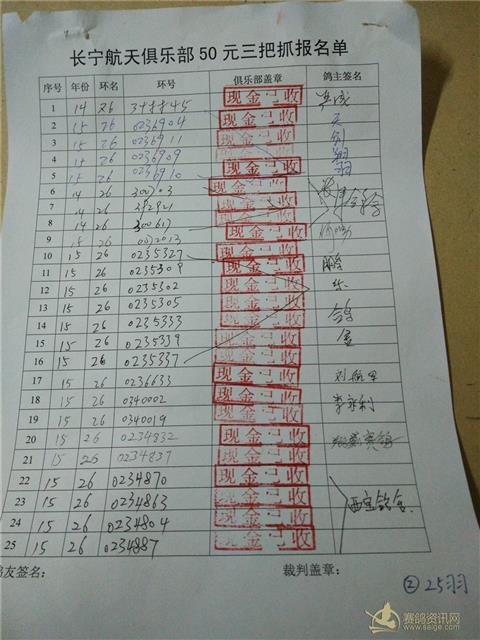 长宁航天俱乐部50元三把抓报名单
序号 年份 环名 环号 俱乐部盖章 鸽主签名
1 14 26 现金已收
2 15 26 0236904 现金已收
3 15 26 0236911 现金已收
4 15 26 0236909 现金已收
5 15 26 0236910 现金已收
6 14 26 300703 现金已收
7 14 26 现金已收
8 14 26 300617 现金已收
9 26 0072013 现金已收
10 15 26 0235327 现金已收
11 15 26 0235309 现金已收
12 15 26 0235302 现金已收
13 15 26 0235305 现金已收
14 15 26 0235333 现金已收
15 15 26 0235339 现金已收
16 15 26 0235337 现金已收
17 15 26 0236633 现金已收 刘航军
18 15 26 0340002 现金已收 李永利
19 15 26 0340019 现金已收
20 15 26 0234832 现金已收
21 15 26 0234837 现金已收
22 15 26 0234870 现金已收
23 15 26 0234863 现金已收
24 15 26 0234804 现金已收
25 15 26 0234887 现金已收
鸽友签名: 裁判盖章:
② 25羽
赛鸽资讯网
www.saige.com